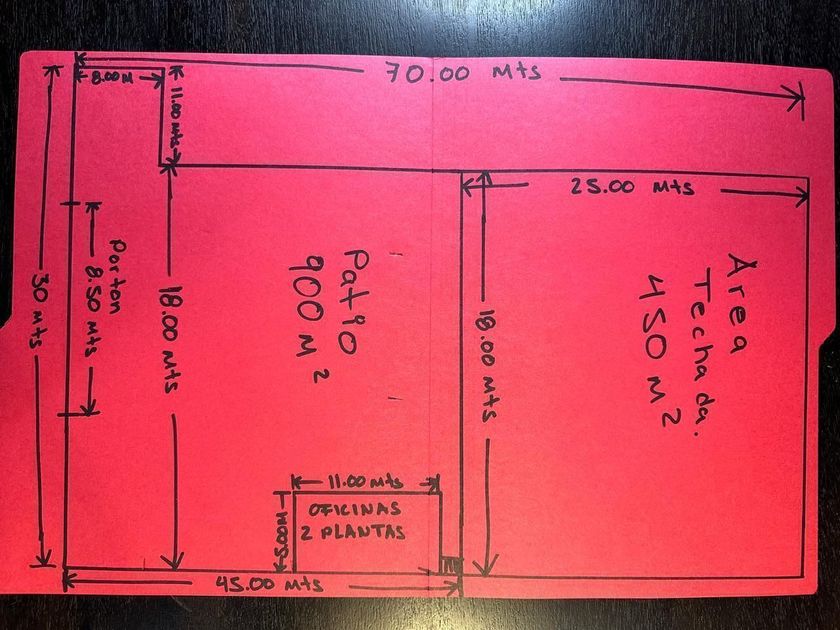 70.00 mts
8.00 M
11.00 mts
25.00 mts
30 mts
Porton
8.50 mts
18.00 mts
Patio
900 M²
18.00 mts
Area
Techada.
450 M²
11.00 mts
5.00 M
OFICINAS
2 PLANTAS
45.00 mts